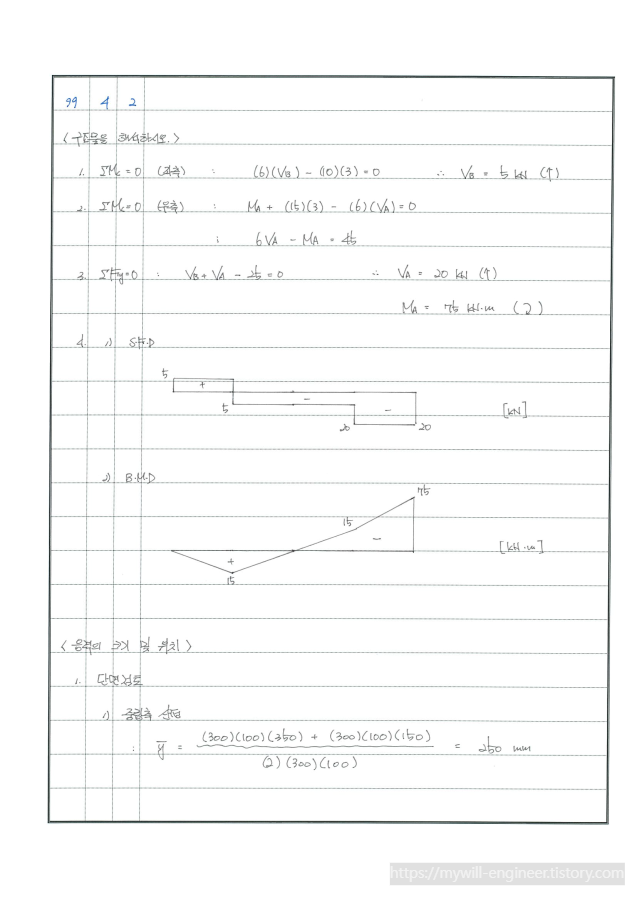 99 4 2
< 구조물을 해석하시오. >
1. ΣMc = 0 (좌측) : (6)(VB) - (10)(3) = 0 ∴ VB = 5 kN (↑)
2. ΣMc = 0 (우측) : MA + (15)(3) - (6)(VA) = 0
: 6VA - MA = 45
3. ΣFy = 0 : VB + VA - 25 = 0 ∴ VA = 20 kN (↑)
MA = 75 kN·m (⤸)
4. 1) S.F.D
5
+
-
5
-
[kN]
20
20
2) B.M.D
75
15
-
[kN·m]
+
15
< 응력의 크기 및 위치 >
1. 단면검토
1) 중립축 산정
: ȳ = (300)(100)(350) + (300)(100)(150) = 250 mm
(2)(300)(100)
https://mywill-engineer.tistory.com